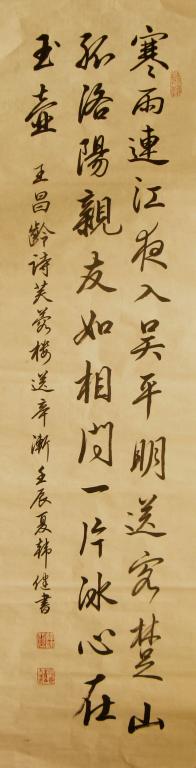 寒雨連江夜入吴平明送客楚山
孤洛陽親友如相问一片冰心在
玉壶
王昌齡诗芙蓉楼送辛渐壬辰夏韩健書